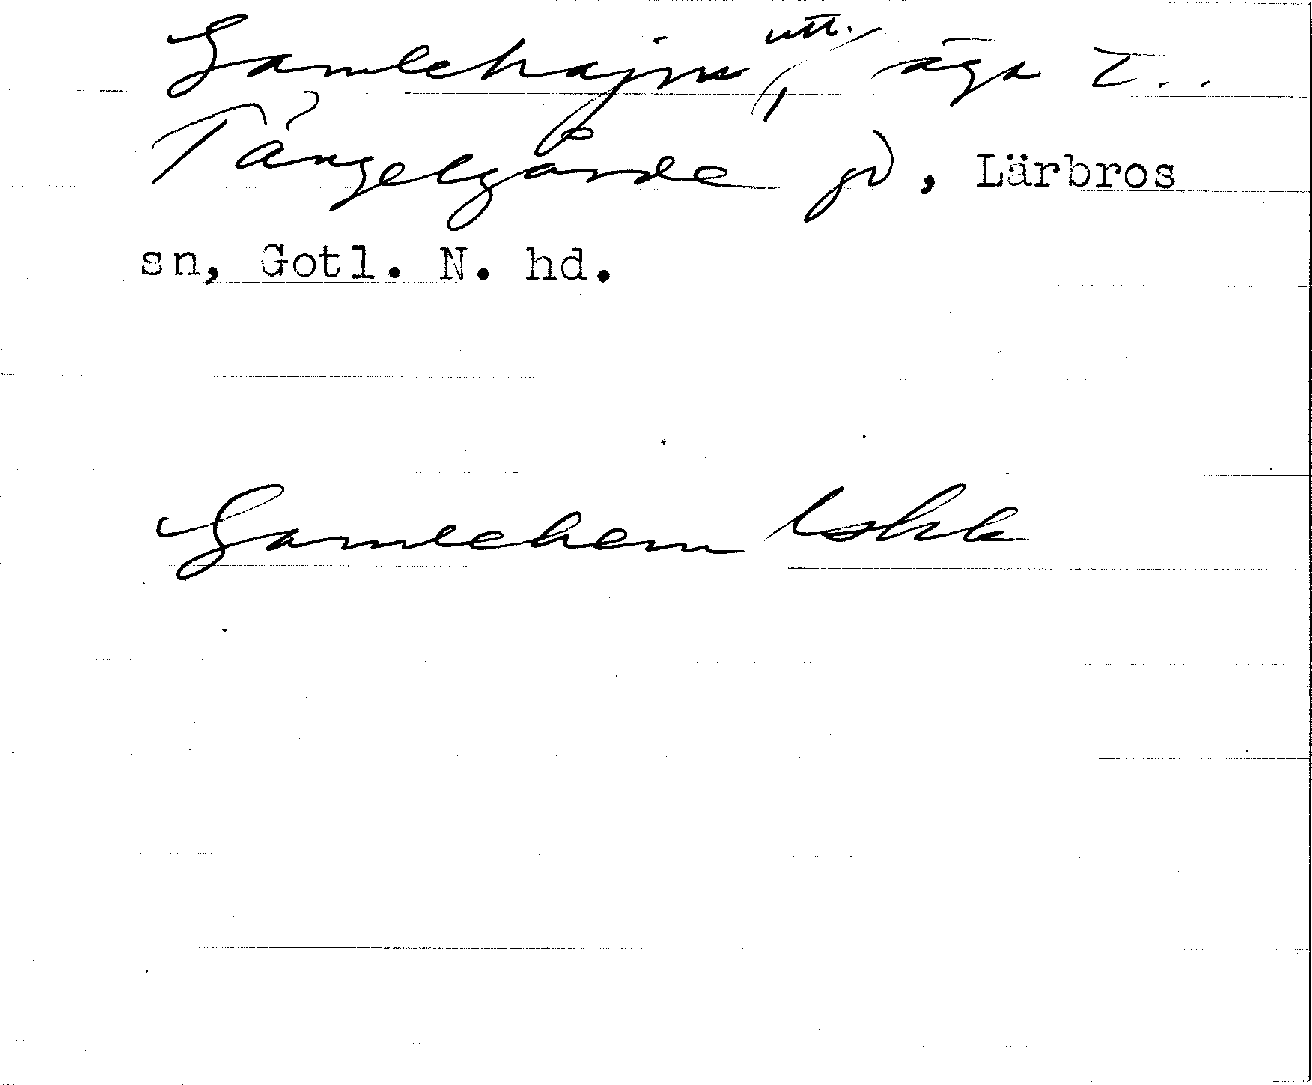 Gamlehajm, utt., äga t..
Tängelgårde gd, Lärbros
sn, Gotl. N. hd.
Gamlehem Eskk